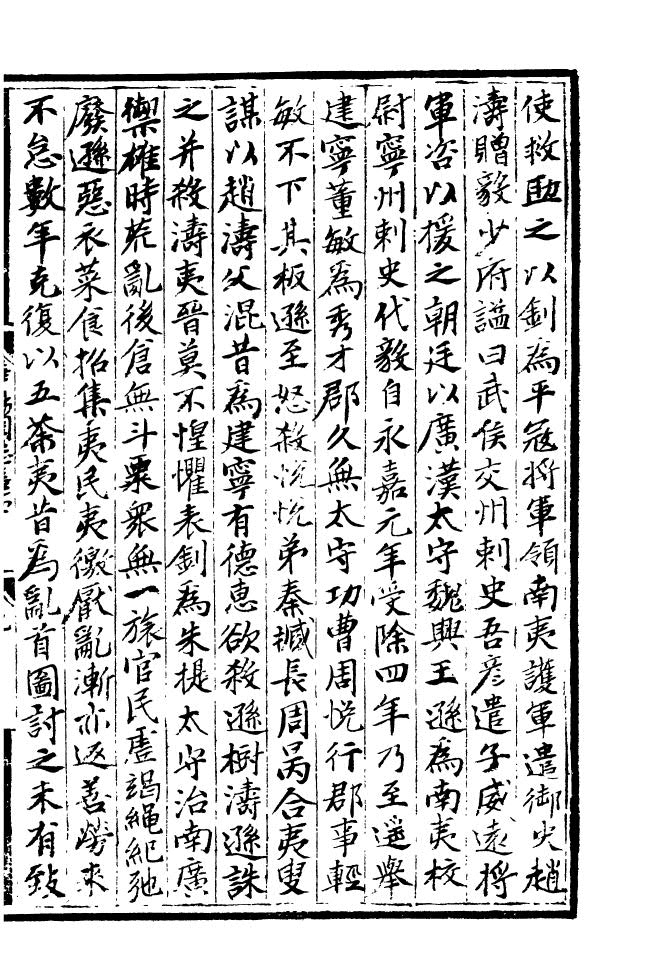 使救助之以釗爲平寇將軍領南夷護軍遣御史趙
濤贈毅少府謚曰武侯交州刺史吾彦遣子威遠將
軍咨以援之朝廷以廣漢太守魏興王遜爲南夷校
尉寧州刺史代毅自永嘉元年受除四年乃至遥舉
建寧董敏爲秀才郡久無太守功曹周悦行郡事輕
敏不下其板遜至怒殺悦悦弟秦臧長周昺合夷叟
謀以趙濤父混昔爲建寧有德惠欲殺遜樹濤遜誅
之并殺濤夷晉莫不惶懼表釗爲朱提太守治南廣
禦雄時荒亂後倉無斗粟衆無一旅官民虚竭繩紀弛
廢遜惡衣菜食招集夷民夷徼厭亂漸亦返善勞來
不怠數年克復以五茶夷昔爲亂首圖討之未有致